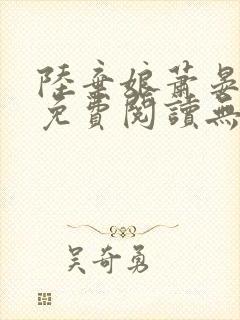 陸棄娘蕭晏
免費閱讀無
吴奇勇